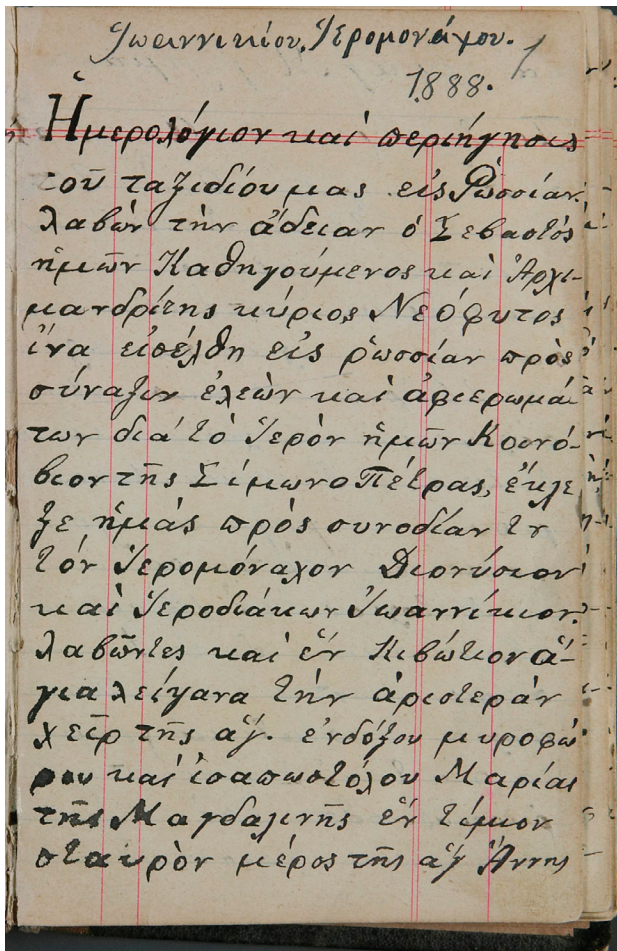 Ἰωαννικίου, Ἱερομονάχου.
1888.
Ἡμερολόγιον καὶ περιήγησις
τοῦ ταξιδίου μας εἰς Ῥωσσίαν.
λαβὼν τὴν ἄδειαν ὁ Σεβαστός
ἡμῶν Καθηγούμενος καὶ Ἀρχι-
μανδρίτης κύριος Νεόφυτος
ἵνα εἰσέλθη εἰς ῥωσσίαν πρὸς
σύναξιν ἐλεῶν καὶ ἀφιερωμά
των διὰ τὸ Ἱερὸν ἡμῶν Κοινό-
βιον τῆς Σίμωνο Πέτρας, ἔκλε
ξε ἡμάς πρὸς συνοδίαν τν
τόν Ἱερομόναχον Διονύσιον
καὶ Ἱεροδιάκων Ἰωαννίκιον.
λαβῶντες καὶ ἓν Κιβώτιον ἅ-
για λείψανα τὴν ἀριστερὰν
χεῖρ τῆς ἁγ. ἐνδόξου μυροφώ
ρου καὶ ἰσαποστόλου Μαρίας
τῆς Μαγδαλινῆς ἓν τίμιον
σταυρὸν μέρος τῆς ἁγ Ἄννης